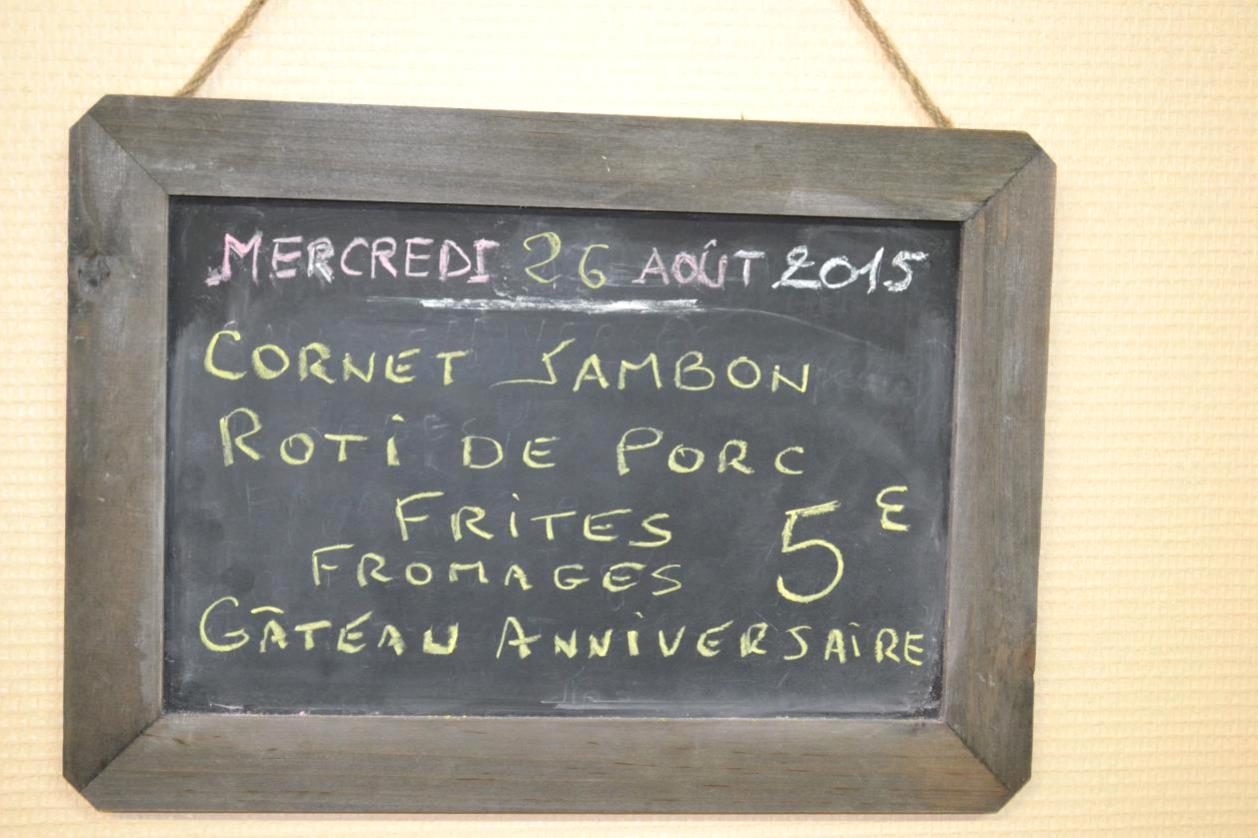 MERCREDI 26 AOÛT 2015
CORNET JAMBON
ROTI DE PORC
FRITES
5 €
FROMAGES
GÂTEAU ANNIVERSAIRE